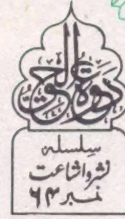 دعوۃ الحق
سلسلہ
نشر و اشاعت
نمبر ۶۳